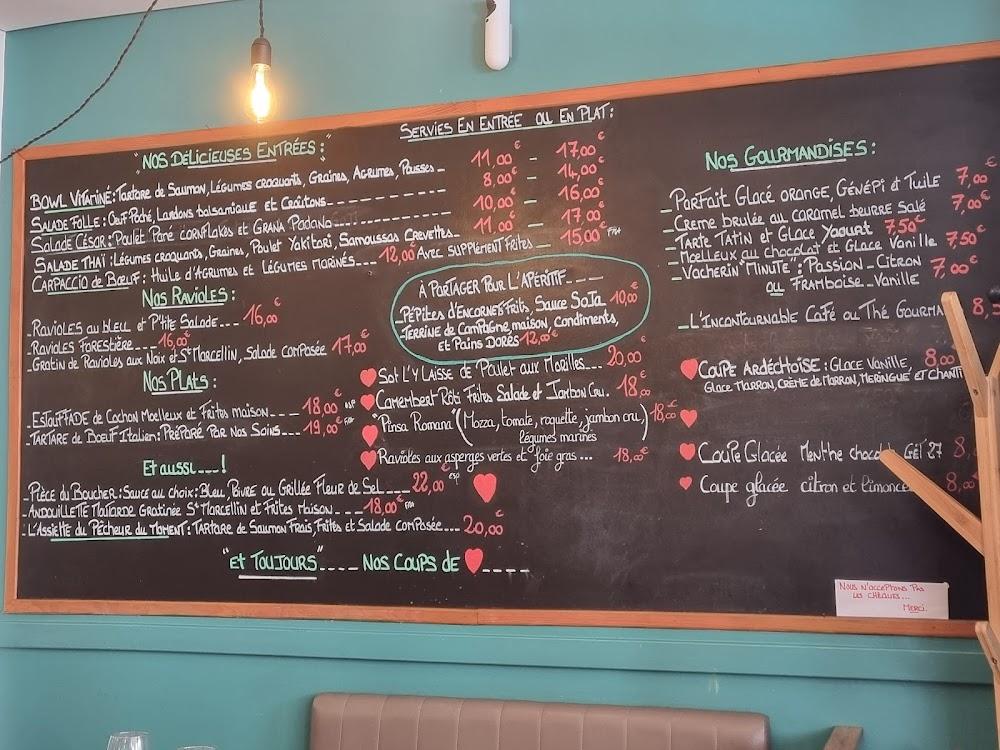 "NOS DÉLICIEUSES ENTRÉES:"
SERVIES EN ENTRÉE OU EN PLAT:
BOWL VITAMINÉ: Tartare de Saumon, Légumes croquants, Graines, Agrumes, Pousses - 11,00€ - 17,00€
SALADE FOLLE: Oeuf Poché, Lardons balsamique et Croûtons 8,00€ - 14,00€
Salade César: Poulet Pané cornflakes et Grana Padano 10,00€ - 16,00€
SALADE THAÏ: Légumes croquants, Graines, Poulet Yakitori, Samoussas Crevettes 11,00€ - 17,00€
CARPACCIO de BOEUF: Huile d'Agrumes et Légumes MARINÉS 12,00€ Avec SUPPLÉMENT Frites 15,00€
NOS RAVIOLES:
- RAVIOLES au bleu et P'tite Salade 16,00€
- Ravioles Forestière 16,00€
- Gratin de Ravioles aux Noix et St Marcellin, Salade composée 17,00€
NOS PLATS:
- ESTOUFFADE de Cochon Moelleux et Frites maison 18,00€
- TARTARE de BOEUF Italien: Préparé Par Nos Soins 19,00€
Et aussi !
- PIÈCE du BOUCHER: Sauce au choix: Bleu, Poivre ou Grillée Fleur de Sel 22,00€
- ANDOUILLETTE Moutarde Gratinée St Marcellin et Frites Maison 18,00€
- L'ASSIETTE du Pêcheur du MOMENT: TARTARE de Saumon Frais, Frites et Salade composée 20,00€
"ET TOUJOURS" NOS COUPS DE ♥
À PARTAGER POUR L'APÉRITIF
- PÉPITES d'ENCORNETS Frits, Sauce SOJA 10,00€
- TERRINE de Campagne maison, Condiments,
et Pains Dorés 12,00€
♥ Sot L'Y Laisse de Poulet aux Morilles 20,00€
♥ Camembert Rôti Frites Salade et Jambon Cru. 18,00€
♥ "Pinsa Romana" (Mozza, tomate, roquette, jambon cru, 18,00€
légumes marinés
♥ Ravioles aux asperges vertes et foie gras ... 18,00€
NOS GOURMANDISES:
- PARFAIT Glacé ORANGE, GÉNÉPI et TUILE 7,00€
- Creme brulée au caramel beurre salé 7,00€
- TARTE TATIN et Glace Yaourt 7,50€
- Moelleux au chocolat et Glace Vanille 7,50€
- VACHERIN MINUTE: Passion - Citron
ou Framboise - Vanille 7,00€
- L'INCONTOURNABLE Café ou Thé GOURMA 8,
♥ COUPE ARDÉCHOISE: Glace Vanille, 8,00€
Glace MARRON, CRÈME de MARRON, MERINGUE et CHANTI
♥ COUPE Glacée Menthe chocolat GET 27 8,
♥ Coupe glacée citron et limonce 8,00
NOUS N'ACCEPTONS PAS
LES CHÈQUES...
MERCI.